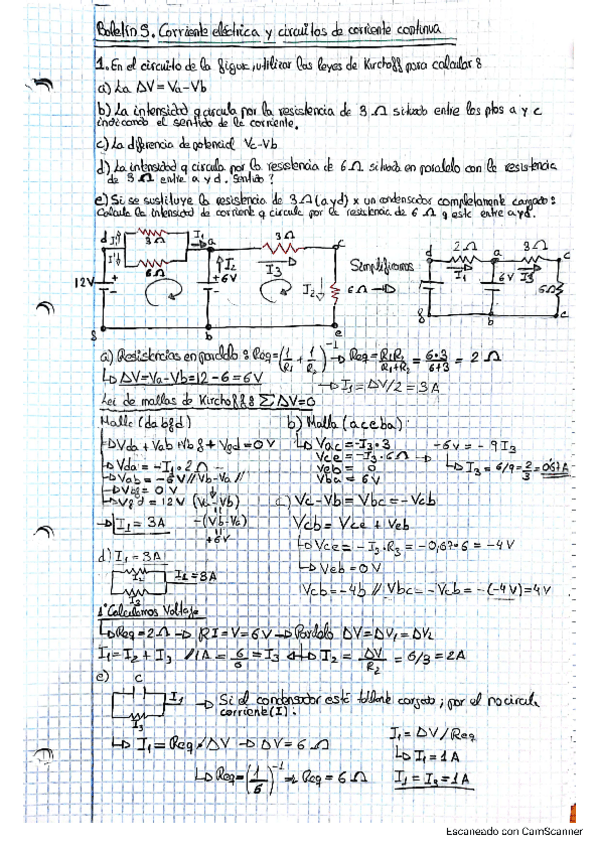 Boletín 5. Corriente eléctrica y circuitos de corriente continua
1. En el circuito de la figura, utilizar las leyes de Kirchoff para calcular:
a) La ΔV = Va - Vb
b) La intensidad q circula por la resistencia de 3 Ω situado entre los ptos a y c
indicando el sentido de la corriente.
c) La diferencia de potencial Vc - Vb
d) La intensidad q circula por la resistencia de 6 Ω situada en paralelo con la resistencia
de 3 Ω entre a y d. Sentido?
e) Si se sustituye la resistencia de 3 Ω (a y d) x un condensador completamente cargado:
Calcula la intensidad de corriente q circula por la resistencia de 6 Ω q este entre a y d.
d 3Ω I1 a 3Ω c
6Ω I2 I3
12V 6V I2 6Ω
b e
Simplificamos
d 2Ω a 3Ω c
I1 6V I3 6Ω
b
a) Resistencias en paralelo: Req = (1/R1 + 1/R2)^-1 → Req = R1R2/R1+R2 = 6·3/6+3 = 2 Ω
↳ ΔV = Va - Vb = 12 - 6 = 6V → I1 = ΔV/2 = 3A
Lei de mallas de Kirchoff: ΣΔV = 0
Malla (dabfd)
↳ Vda + Vab + Vbf + Vfd = 0V
→ Vda = -I1·2Ω
→ Vab = -6V // Vb - Va //
→ Vbf = 0V
→ Vfd = 12V (Va - Vb)
-(Vb - Va)
+6V
→ I1 = 3A
b) Malla (aceba):
↳ Vac = -I3·3
Vce = -I3·6Ω →
Veb = 0
Vba = 6V
-6v = -9I3
↳ I3 = 6/9 = 2/3 = 0'67A
c) Vc - Vb = Vbc = -Vcb
Vcb = Vce + Veb
↳ Vce = -I3·R3 = -0,67·6 = -4V
↳ Veb = 0V
Vcb = -4v // Vbc = -Vcb = -(-4V) = 4V
d) I1 = 3A
I2 I1 = 3A
I3
1º Calculamos Voltaje
↳ Req = 2Ω → RI = V = 6V → Paralelo ΔV = ΔV1 = ΔV2
I1 = I2 + I3 // 1A = 6/6 = I3 ↔ I2 = ΔV/R2 = 6/3 = 2A
e) C I1
I3
→ Si el condensador está cargado, por el no circula
corriente (I).
↳ I1 = Req / ΔV → ΔV = 6 Ω
↳ Req = (1/6)^-1 → Req = 6 Ω
I1 = ΔV/Req
↳ I1 = 1A
I1 = I3 = 1A
Escaneado con CamScanner